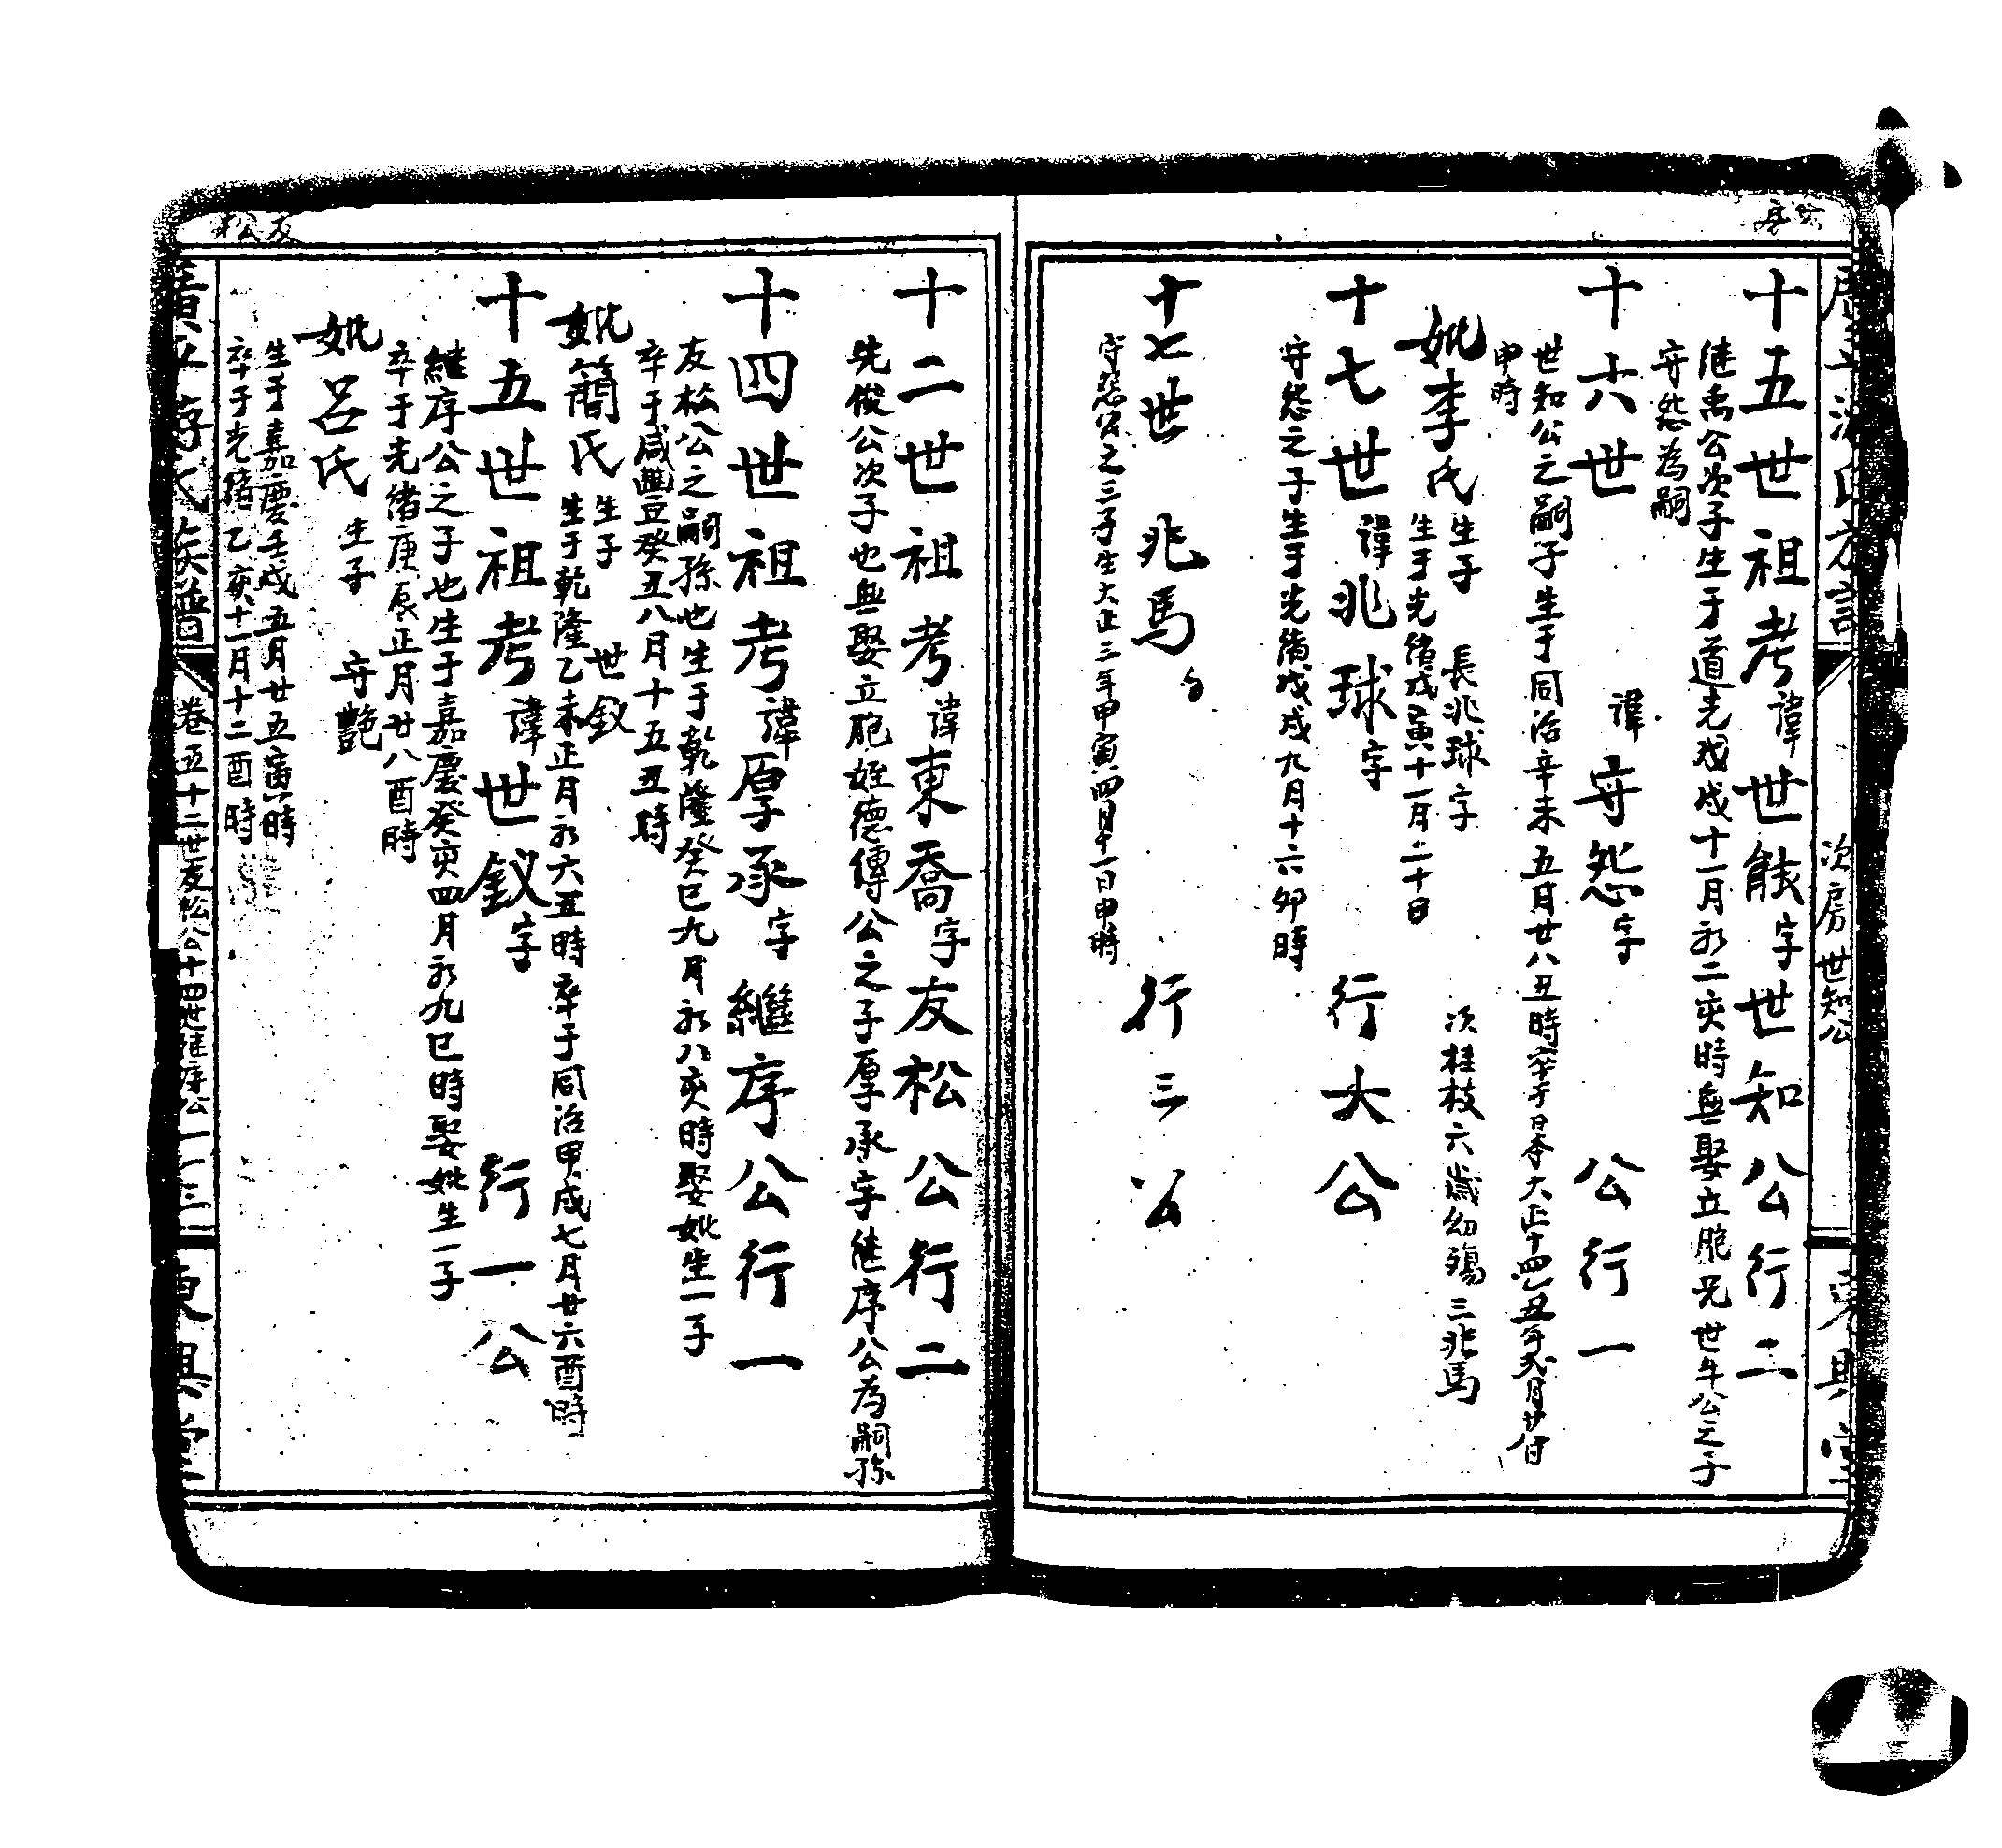 次房 世知公
十五世祖考諱世䏻字世知公行二
継禹公次子生于道光戊戌十一月初二亥時無娶立胞兄世牛公之子
守怨為嗣
十六世 諱守怨字 公行一
世知公之嗣子生于同治辛未五月廿八丑時卒于日本大正十四乙丑年弍月廿八日
申時
妣李氏 生子 長兆球字 次桂枝六歲幼殤 三兆馬
生于光緒戊寅十一月二十日
十七世諱兆球字 行大公
守怨之子生于光緒戊戌九月十六卯時
十七世 兆馬 行三公
守怨公之三子生大正三年甲寅四月十一日申時
十二世祖考諱東喬字友松公行二
先俊公次子也無娶立胞姪德傳公之子厚承字継序公為嗣孫
十四世祖考諱厚承字繼序公行一
友松公之嗣孫也生于乾隆癸巳九月初八亥時娶妣生一子
卒于咸豐癸丑八月十五丑時
妣簡氏 生子 世釵
生于乾隆乙未正月初六丑時卒于同治甲戌七月廿六酉時
十五世祖考諱世釵字 行一公
繼序公之子也生于嘉慶癸亥四月初九巳時娶妣生一子
卒于光緒庚辰正月廿八酉時
妣呂氏 生子 守艷
生于嘉慶壬戌五月廿五寅時
卒于光緒乙亥十一月十二酉時
友松
族譜 卷五十二世友松公十四世継序公 東興堂